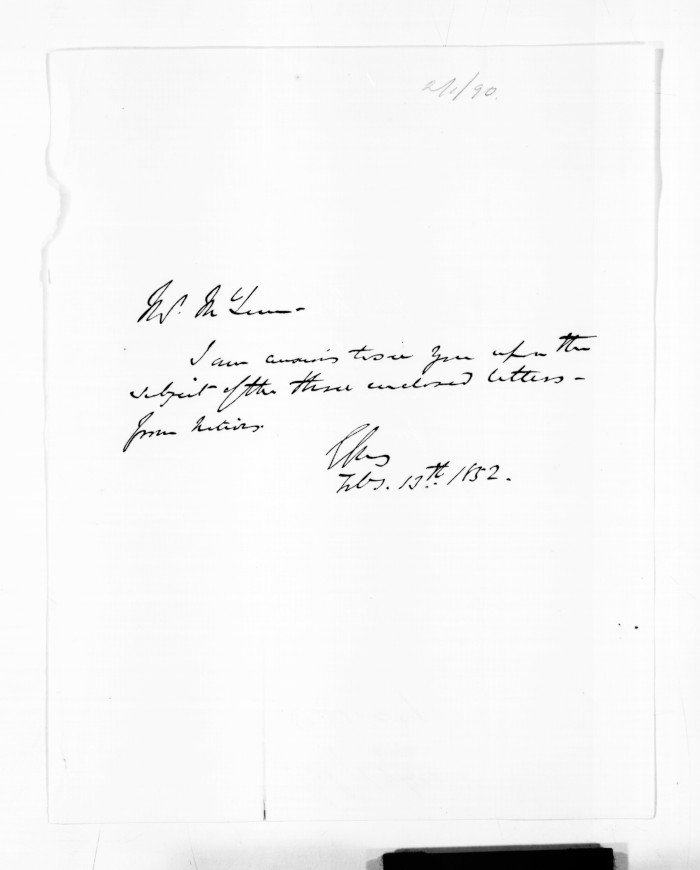 2/1/90.
Mr. McLean -
I am anxious to see you upon the
subject of the three enclosed letters -
from Natives.
Feby. 13th. 1852.